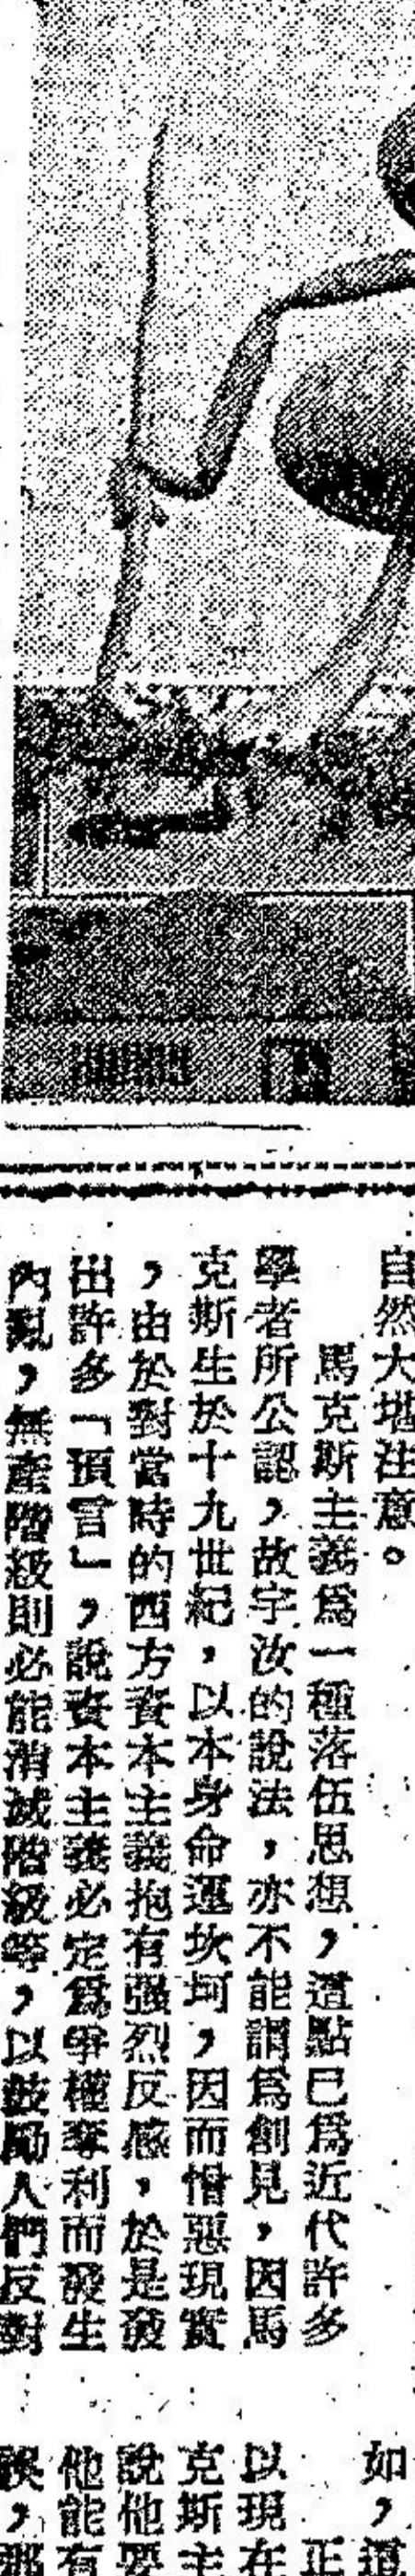 自然大地注意。
馬克斯主義爲一種落伍思想，這點已爲近代許多
學者所公認，故宇汝的說法，亦不能謂爲創見，因馬
克斯生於十九世紀，以本身命運坎坷，因而憎惡現實
，由於對當時的西方資本主義抱有强烈反感，於是發
出許多「預言」，說資本主義必定爲爭權奪利而發生
內亂，無產階級則必能消滅階級等，以鼓勵人們反對
如，這
正
以現在
克斯主
說他要
他能有
誤，那